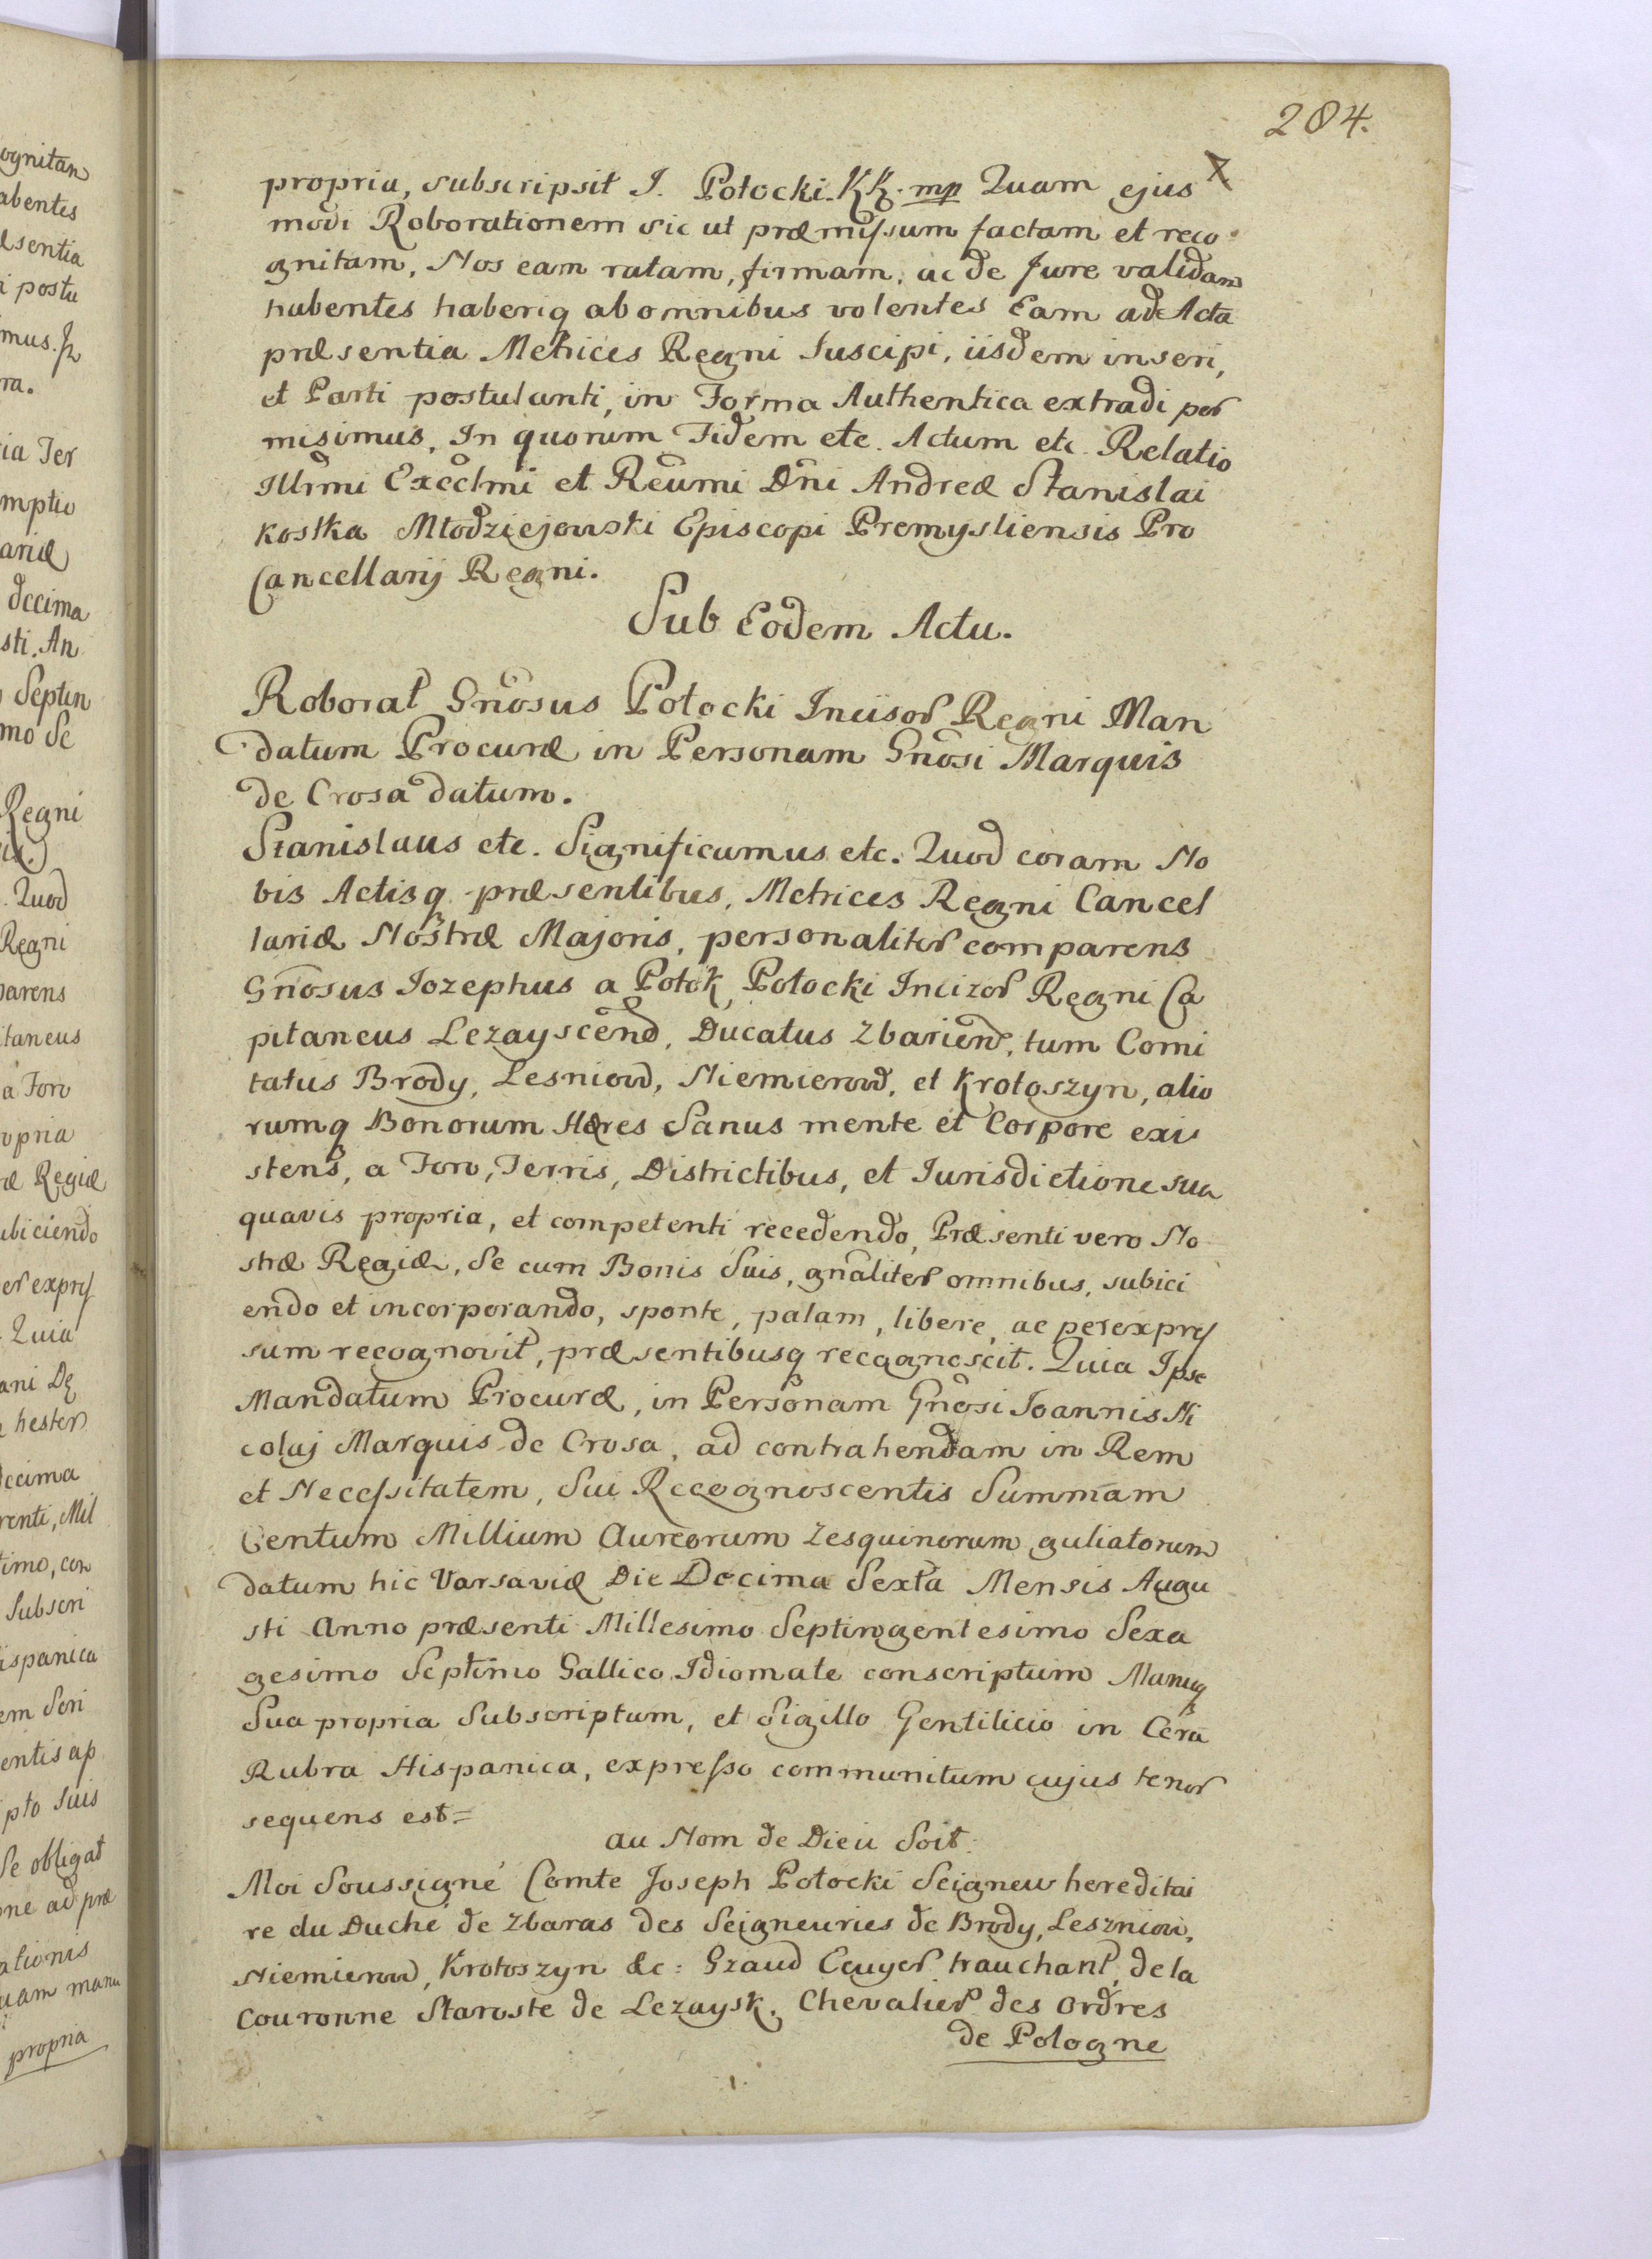 204.
propria, subscripsit J. Potocki. KK. mp Quam ejus
modi Roborationem sic ut præmissum factam et reco
gnitam, Nos eam ratam, firmam, ac de Jure validam
habentes haberiq ab omnibus volentes Eam ad Acta
præsentia Metrices Regni Suscipi, iisdem inseri,
et Parti postulanti, in Forma Authentica extradi per
misimus, In quorum Fidem etc. Actum etc. Relatio
Illrmi Excellmi et Reumi Dni Andreæ Stanislai
Kostka Młodziejowski Episcopi Premysliensis Pro
Cancellarij Regni.
Sub Eodem Actu.
Roborat Gnosus Potocki Incisor Regni Man
datum Procuræ in Personam Gnosi Marquis
de Crosa datum.
Stanislaus etc. Significamus etc. Quod coram No
bis Actisq præsentibus, Metrices Regni Cancel
lariæ Nostræ Majoris, personaliter comparens
Gnosus Iozephus a Potok, Potocki Incizor Regni Ca
pitaneus Lezayscens, Ducatus Zbariens, tum Comi
tatus Brody, Lesniow, Niemierow, et Krotoszyn, alio
rumq Bonorum Hæres Sanus mente et Corpore exi
stens, a Foro, Terris, Districtibus, et Iurisdictione sua
quavis propria, et competenti recedendo, Præsenti vero No
stræ Regiæ, Se cum Bonis Suis, gnaliter omnibus, subici
endo et incorporando, sponte, palam, libere, ac per expres
sum recognovit, præsentibusq recognoscit. Quia Ipse
Mandatum Procuræ, in Personam Gnosi Joannis Ni
colaj Marquis de Crosa, ad contrahendam in Rem
et Necessitatem, Sui Recognoscentis Summam
Centum Millium Aureorum Zesquinorum guliatorum
datum hic Varsaviæ Die Decima Sexta Mensis Augu
sti Anno præsenti Millesimo Septingentesimo Sexa
gesimo Septimo Gallico Idiomate conscriptum Manuq
Sua propria Subscriptum, et Sigillo Gentilicio in Cera
Rubra Hispanica, expresso communitum cujus tenor
sequens est=
au Nom de Dieu Soit.
Moi Soussigné Comte Joseph Potocki Seigneur hereditai
re du Duché de Zbaras des Seigneuries de Brody, Leszniow,
Niemierow, Krotoszyn &c: Graud Ecuyer trauchant, de la
Couronne Staroste de Lezaysk. Chevalier des Ordres
de Pologne